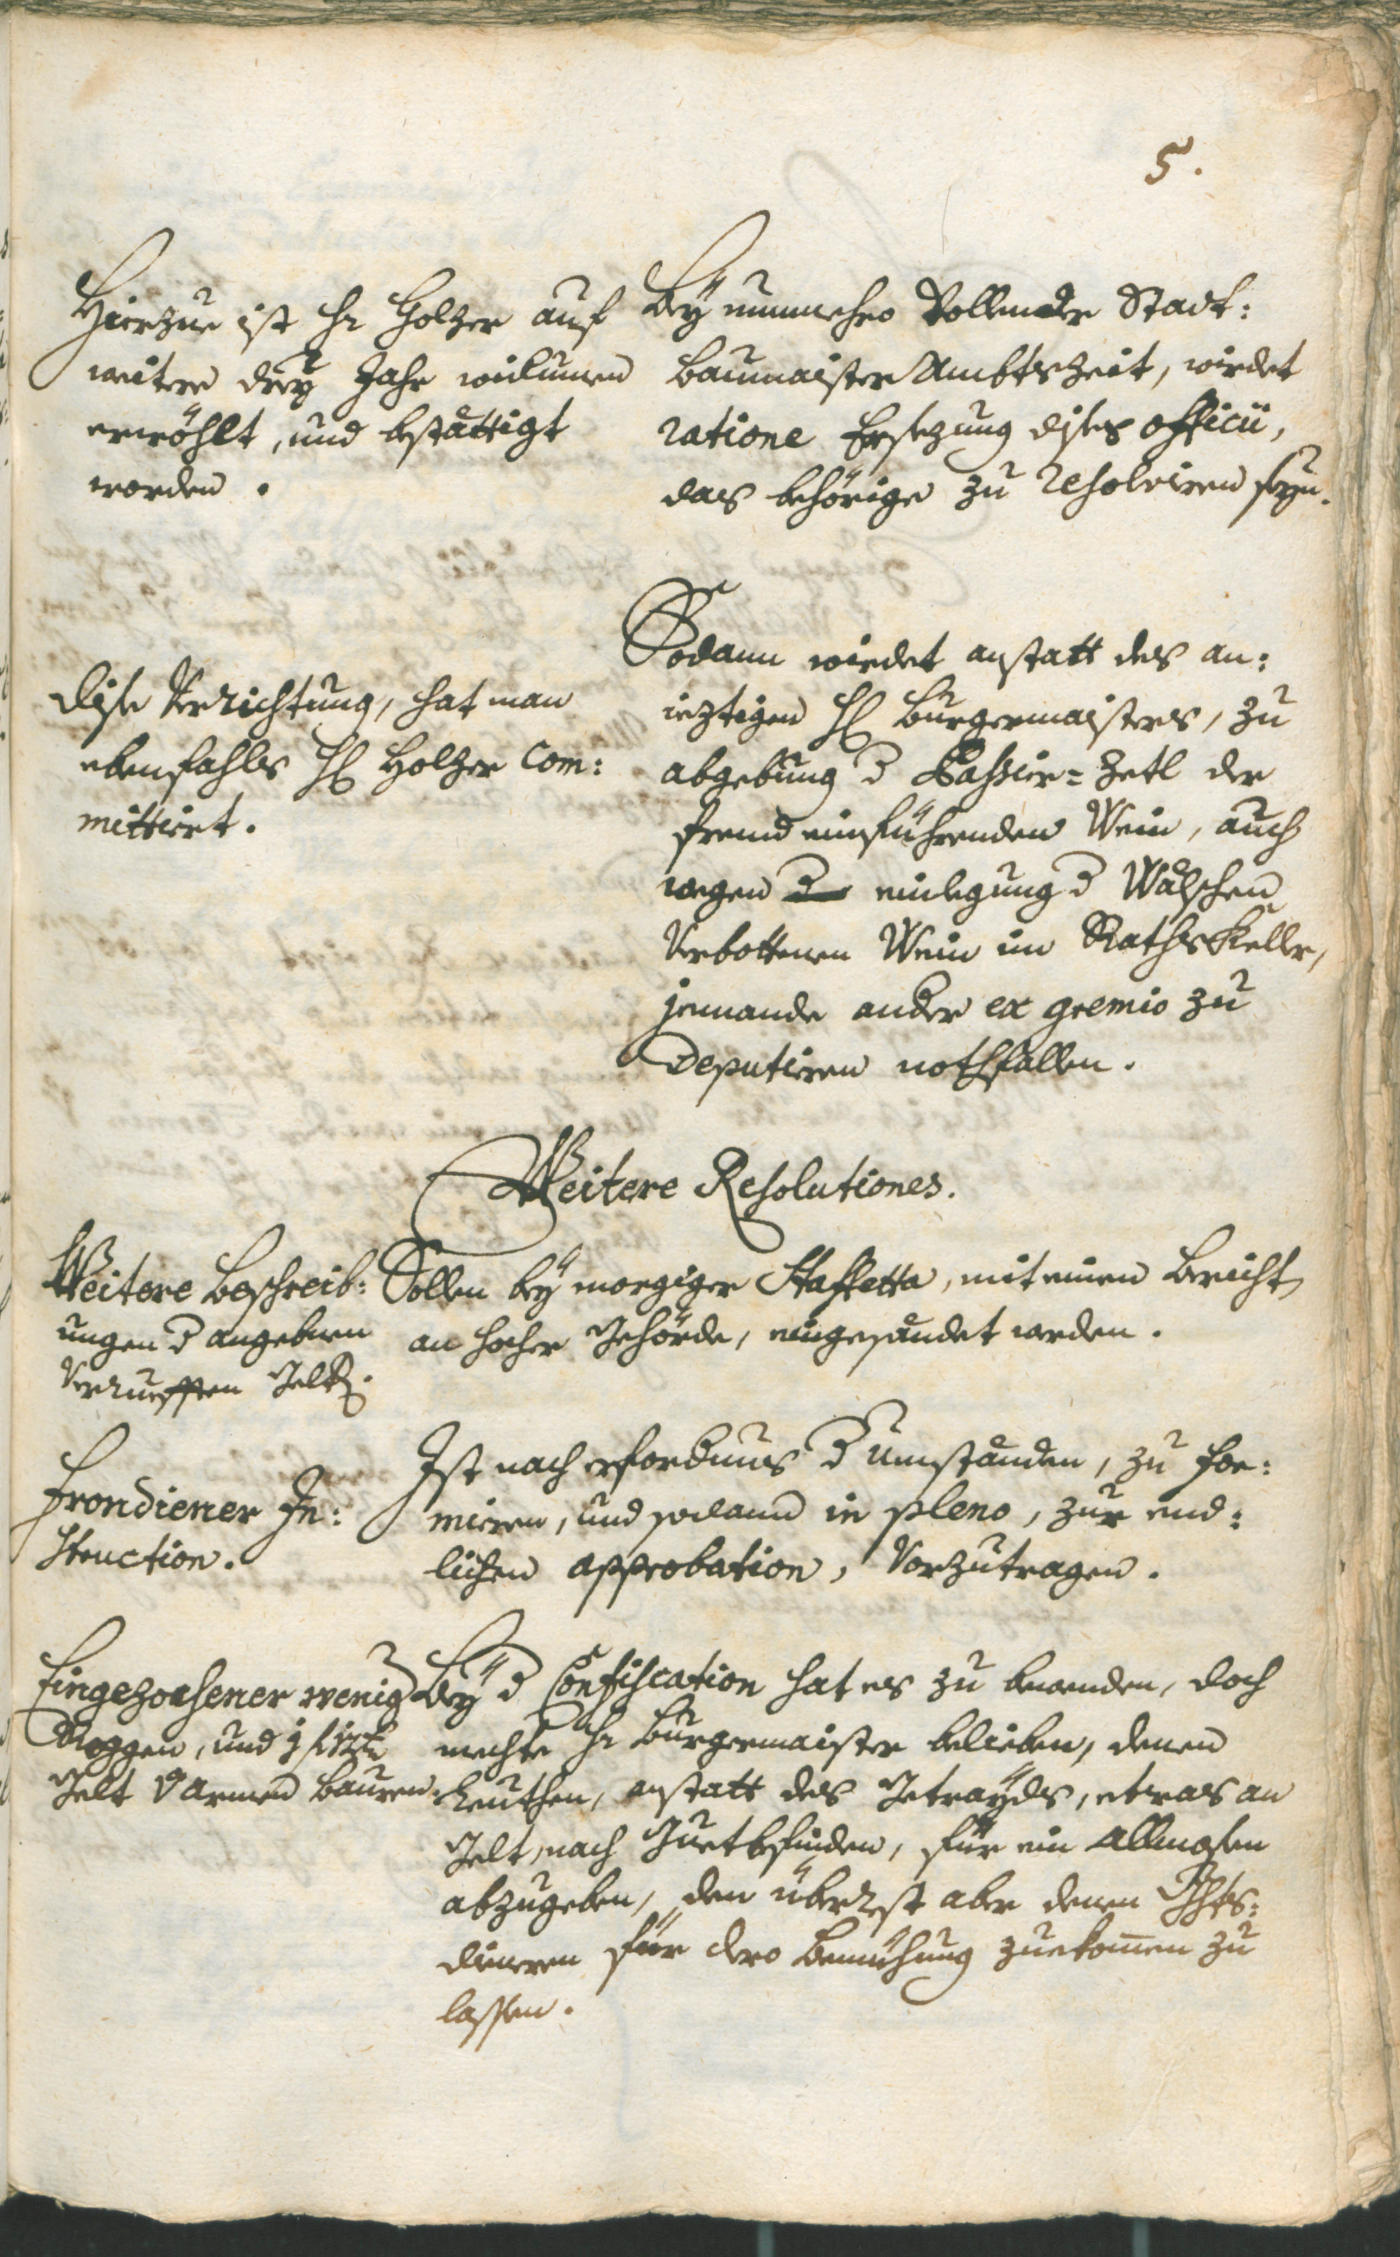 5.
Hierzue ist H: Holzer auf
weitere drey Jahr widumen
erwöhlt, und bestättigt
worden.
Bey nunmehro Vollender Stadt:
baumaister Ambtszeit, wirdet
ratione Ersezung dises officii,
das behörige zu resolviren seyn.
Sodann wirdet anstatt des an:
ieztigen H: Burgermaisters, zu
abgebung d Passier-Zetl der
fremd einführenden Wein, auch
wegen einlegung d Wälschen
Verbottenen Wein im RathsKeller,
jemande ander ex gremio zu
Deputiren nothfallen.
dise Verrichtung, hat man
ebenfahls H: Holzer Com:
mittirt.
Weitere Resolutiones.
Weitere Beschreib:
ungen d angebnen
Verrueffen Gelts.
Sollen bey morgiger Staffetta, mit einen Bericht
an hocher Gehörde, eingesändet werden.
Frondiener In:
struction.
Ist nach erfordnus d Umständen, zu for:
miren, und sodann in pleno, zur end:
lichen approbation, Vorzutragen.
Eingezochener wenig
Roggen, und
Gelt d Armen Bauren.
Bey d Confiscation hat es zu bewenden, doch
mechte H: Burgermaister belieben, denen
Leuthen, anstatt des Getrayds, etwas an
Gelt, nach Guetbefinden, für ein Allmosen
abzugeben, den überrest aber denen Ghts:
dieneren für dero Bemühung zuekomen zu
lassen.